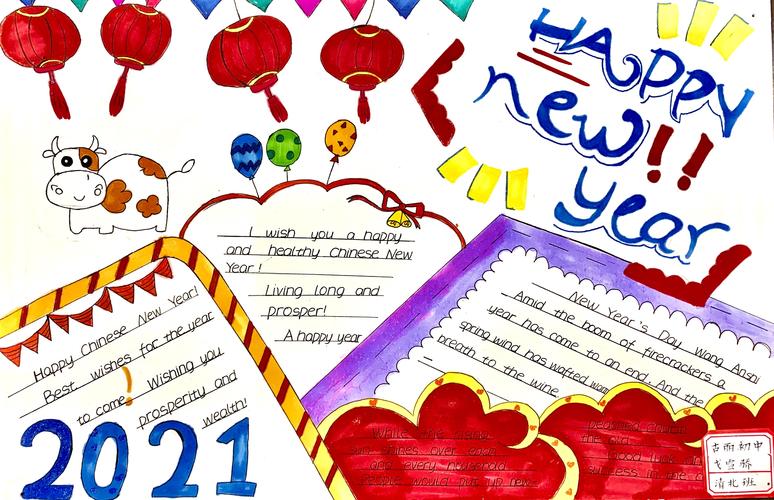 HAPPY
new!!
year
I wish you a happy
and healthy Chinese New
Year!
Living long and
prosper!
A happy year
Happy Chinese New Year!
Best wishes for the year
to come! Wishing you
prosperity and
wealth!
2021
New Year's Day Wang Anshi
Amid the boom of firecrackers a
year has come to an end. And the
spring wind has wafted warm
breath to the wine
While the rising
sun shines over each
and every household
People would put up new
the old
Good luck
success in the
吉雨初中
戈雪桥
清北班